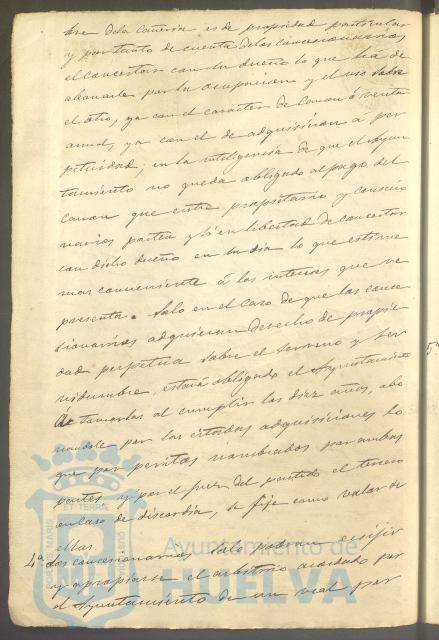 bre de la cañería es de propiedad particular
y por tanto de cuenta de los concesionarios
el concertar con su dueño lo que há de
abonarle por la ocupacion y el uso sobre
el otro, ya con el caracter de canon ó renta
anual, ya con el de adquisicion á per
petuidad; en la inteligencia de que el Ayun
tamiento no queda obligado al pago del
canon que entre propietario y concesio
narios pacten y si en libertad de concertar
con dicho dueño en su dia lo que estime
mas conveniente á los intereses que re
presenta. Solo en el caso de que los conce
sionarios adquieran derecho de propie
dad perpétua sobre el terreno y ser
vidumbre, estará obligado el Ayuntamiento
á tomarlas al cumplir los diez años, abo
nandole por las citadas adquisiciones lo
que por peritos nombrados por ambas
partes y por el Juez del partido el tercero
en caso de discordia, se fije como valor de
ellas.
4ª Los concesionarios solo podran exijir
y apropiarse el arbitrio acordado por
el Ayuntamiento de un real por
PORTUS MARIS ET TERRÆ CUSTODIA
Ayuntamiento de
HUELVA
5ª